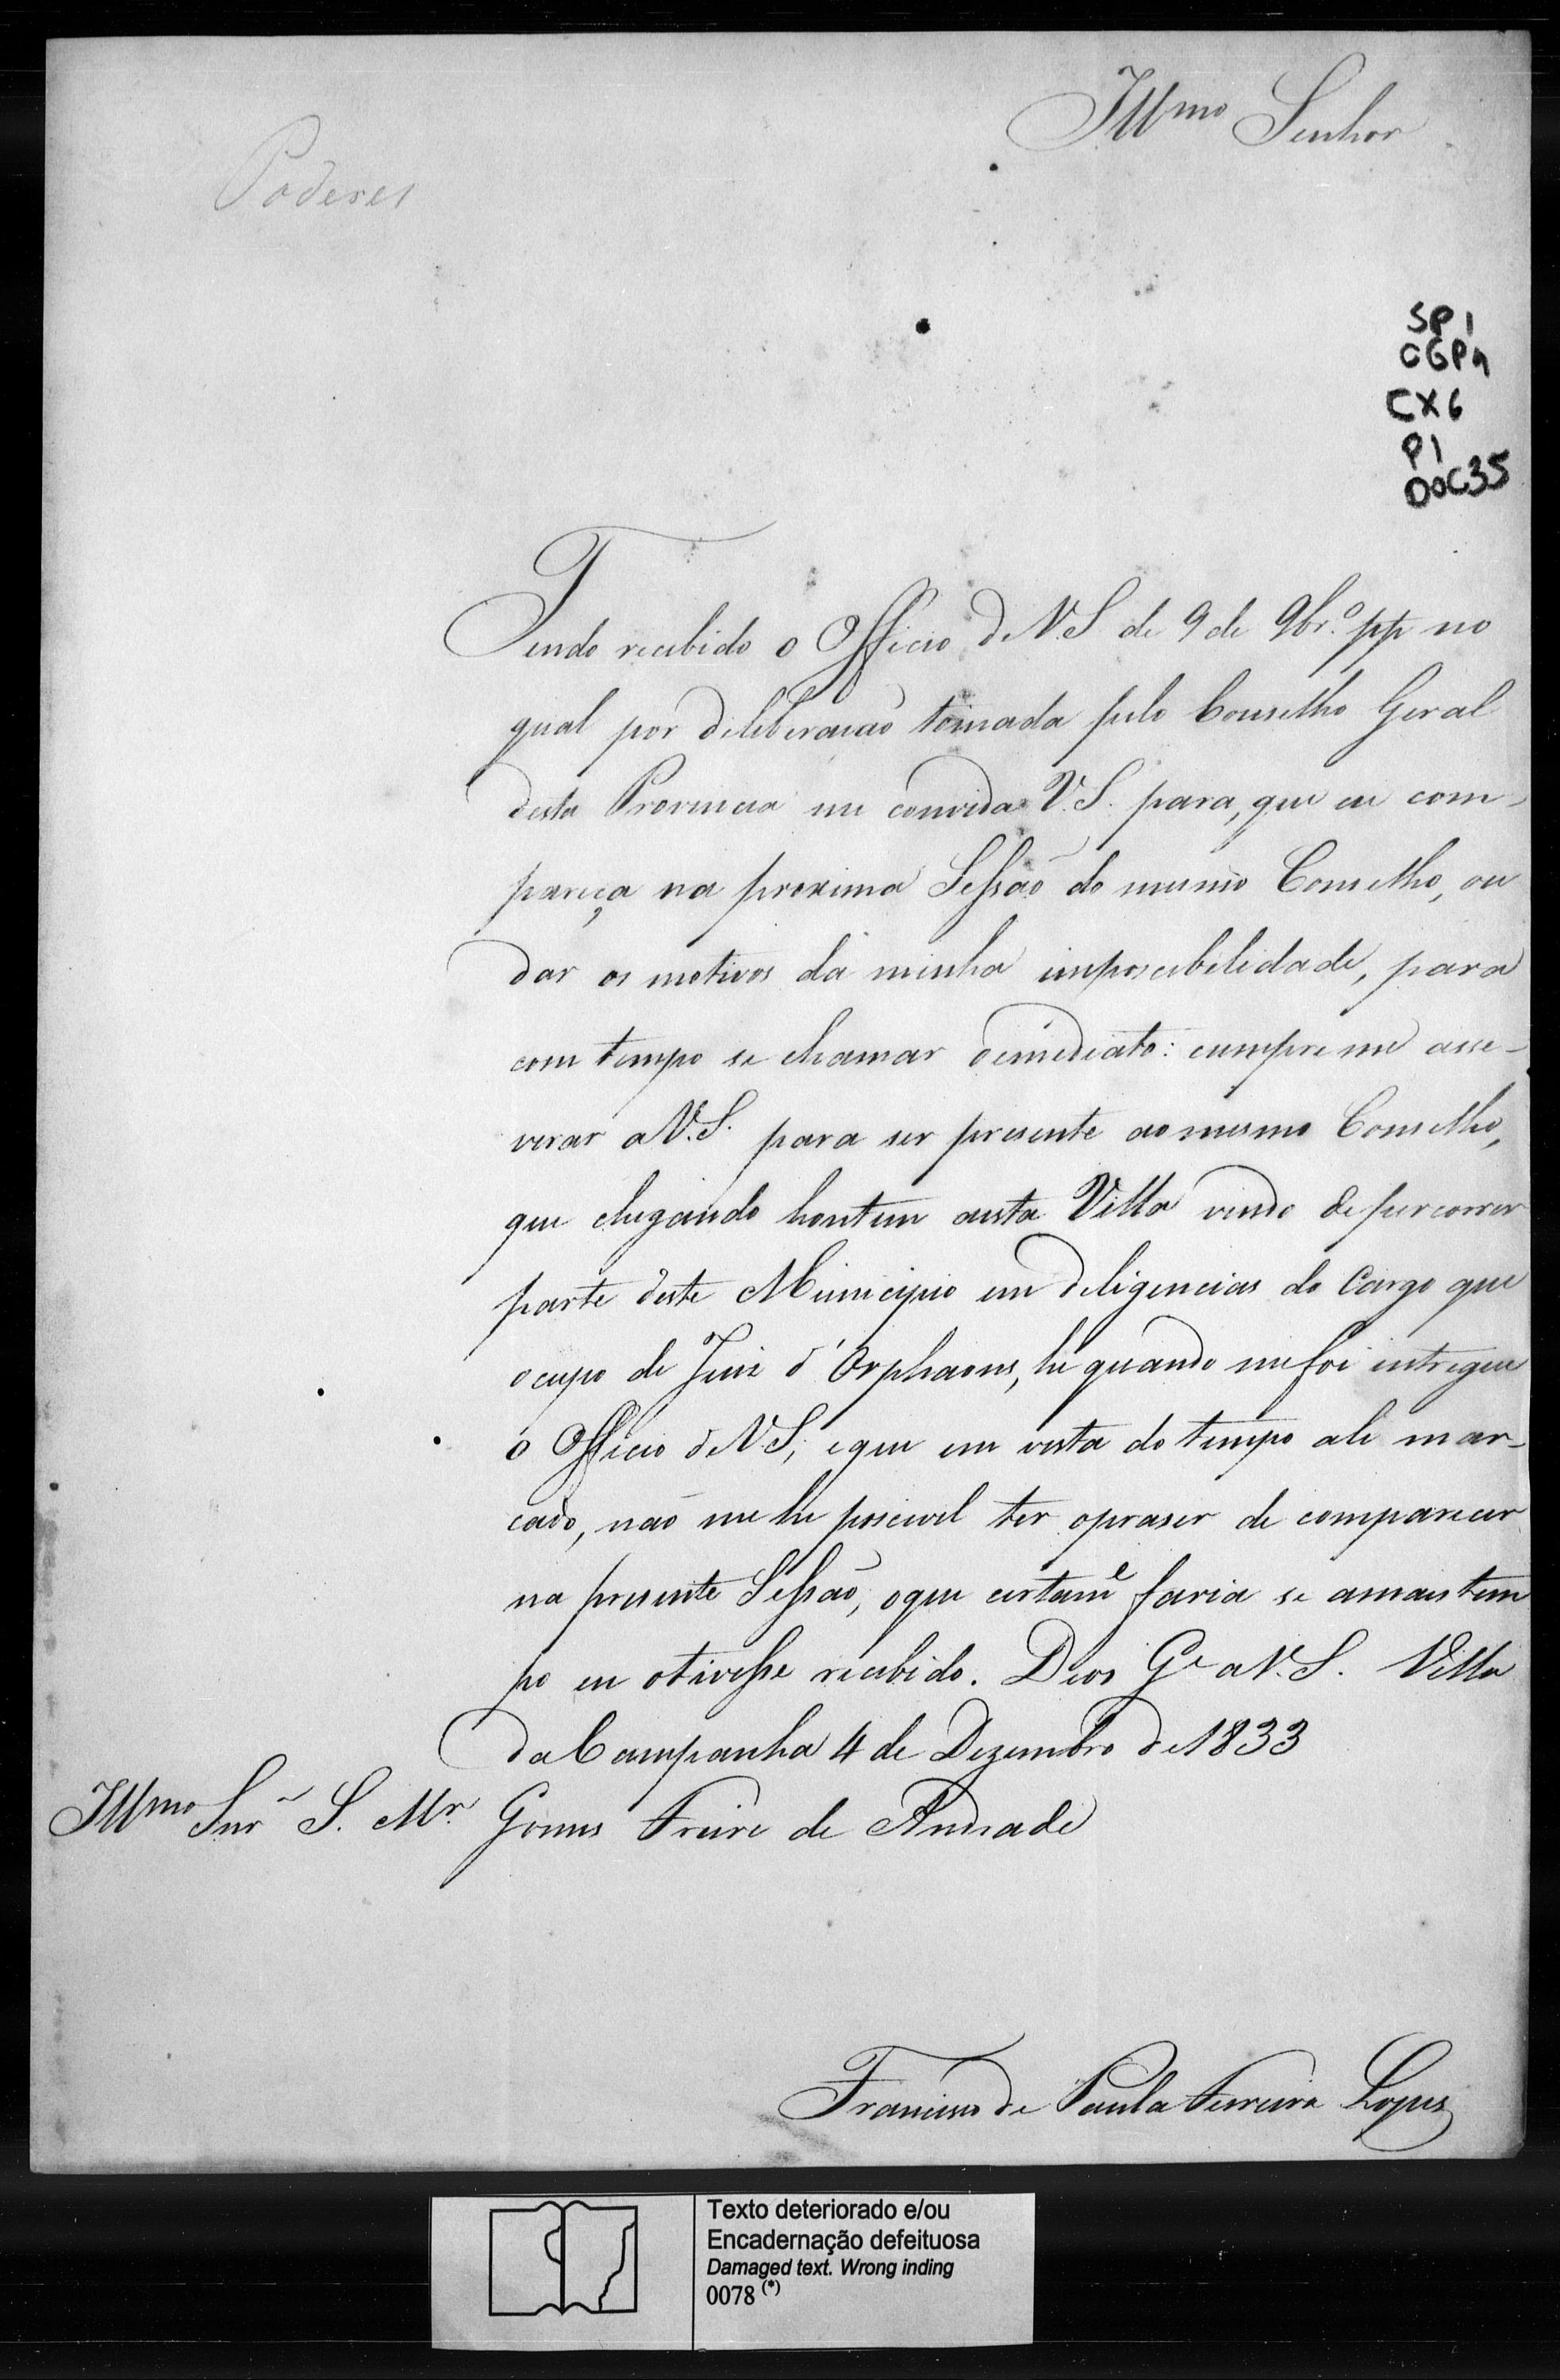 Illmo Senhor
Poderes
SP1
CGP1
CX6
P1
DOC35
Tendo recebido o Officio de V.S. de 9 de 9br.º pp no
qual por deliberacaõ tomada pelo Conselho Geral
desta Provincia me convida V.S. para, que eu com-
pareça na proxima Sessaõ do mesmo Conselho, ou
dar os motivos da minha imposcibilidade, para
com tempo se chamar oimediato: cumpre me asse-
verar a V.S. para ser presente ao mesmo Conselho,
que chegando hontem aesta Villa vindo de percorrer
parte deste Municipio em deligencias do Cargo que
ocupo de Juiz d'Orphaons, he quando me foi intregue
o Officio de V S, e que em vista do tempo ali mar-
cado, naõ me he pocivel ter opraser de comparecer
na presente Sessaõ, oque certamᵉ faria se amais tem
po eu otivesse recebido. Deos Gᵉ a V.S. Villa
da Campanha 4 de Dezembro de 1833
Illmo Snr S. Mr. Gomes Freire de Andrade
Francisco de Paula Ferreira Lopes
Texto deteriorado e/ou
Encadernação defeituosa
Damaged text. Wrong inding
0078 (*)